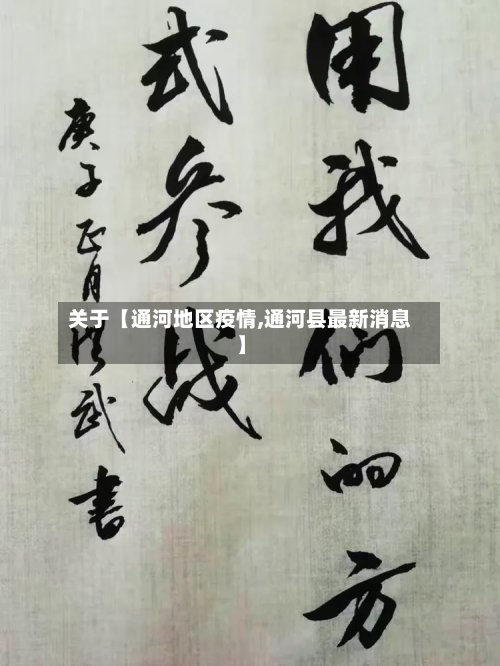 用我们的方
式参战
庚子正月洪武书
关于【通河地区疫情,通河县最新消息
】